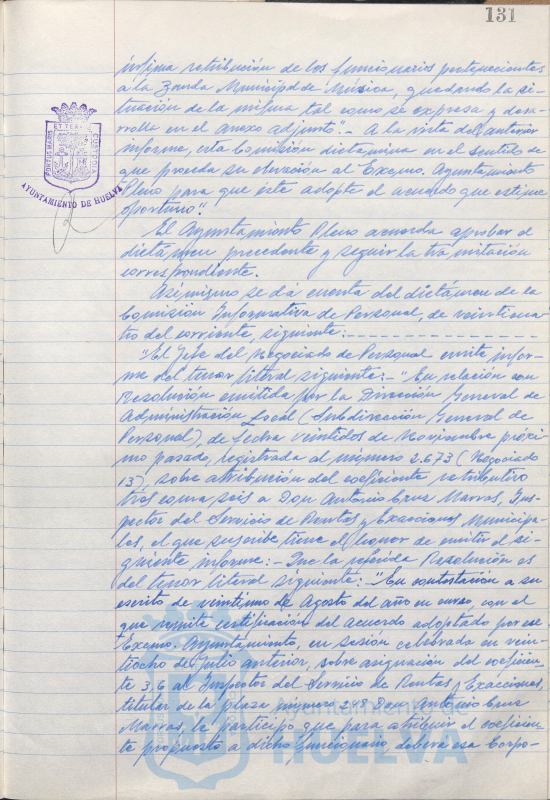 131
ínfima retribución de los funcionarios pertenecientes
a la Banda Municipal de Música, quedando la si-
tuación de la misma tal como se expresa y desa-
rrolla en el anexo adjunto".- A la vista del anterior
informe, esta Comisión dictamina en el sentido de
que proceda su elevación al Excmo. Ayuntamiento
Pleno para que éste adopte el acuerdo que estime
oportuno".
El Ayuntamiento Pleno acuerda aprobar el
dictámen precedente y seguir la tramitación
correspondiente.
Asímismo se dá cuenta del dictámen de la
Comisión Informativa de Personal, de veinticua-
tro del corriente, siguiente:
"El Jefe del Negociado de Personal emite infor-
me del tenor literal siguiente:- "En relación con
Resolución emitida por la Dirección General de
Administración Local (Subdirección General de
Personal), de fecha veintidos de Noviembre próxi-
mo pasado, registrada al número 2.673 (Negociado
13), sobre atribución del coeficiente retributivo
tres coma seis a Don Antonio Cruz Marras, Ins-
pector del Servicio de Rentas y Exacciones Municipa-
les, el que suscribe tiene el honor de emitir el si-
guiente informe:- Que la referida Resolución es
del tenor literal siguiente:- "En contestación a su
escrito de veintiuno de Agosto del año en curso, con el
que remite certificación del acuerdo adoptado por ese
Excmo. Ayuntamiento, en sesión celebrada en vein-
tiocho de Julio anterior, sobre asignación del coeficien-
te 3,6 al Inspector del Servicio de Rentas y Exacciones,
titular de la plaza número 248 Don Antonio Cruz
Marras, le participo que para atribuir el coeficien-
te propuesto a dicho funcionario, deberá esa Corpo-
PORTUS MARIS ET TERRAE CUSTODIA
AYUNTAMIENTO DE HUELVA
Ayuntamiento de
HUELVA